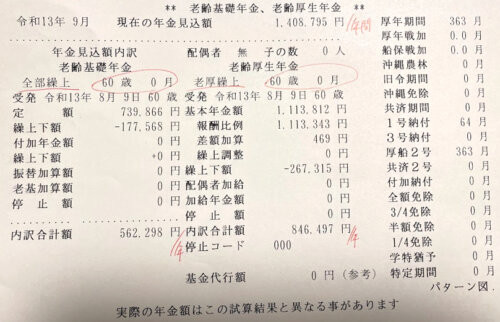 ** 老齢基礎年金、老齢厚生年金 **
令和13年 9月 現在の年金見込額 1,408.795 円 /年間
年金見込額内訳 配偶者 無 子の数 0 人
老齢基礎年金 老齢厚生年金
全部繰上 60 歳 0 月 老厚繰上 60 歳 0 月
受発 令和13年 8月 9日 60 歳 受発 令和13年 8月 9日 60 歳
定 額 739.866 円 基本年金額 1,113.812 円
繰上下額 -177.568 円 報酬比例 1,113.343 円
付加年金額 0 円 差額加算 469 円
繰上下額 +0 円 繰上調整 0 円
振替加算額 0 円 繰上下額 -267.315 円
老基加算額 0 円 配偶者加給 0 円
停 止 額 0 円 加給年金額 0 円
停 止 額 0 円
内訳合計額 562.298 円 /年 内訳合計額 846.497 円 /年
停止コード 000
基金代行額 0 円 (参考)
厚年期間 363 月
厚年戦加 0.0 月
船保戦加 0.0 月
沖縄農林 0 月
旧令期間 0 月
沖縄免除 0 月
共済期間 0 月
1号納付 64 月
3号納付 0 月
厚船2号 363 月
共済2号 0 月
付加納付 0 月
全額免除 0 月
3/4免除 0 月
半額免除 0 月
1/4免除 0 月
学特猶予 0 月
特定期間 0 月
パターン図.
実際の年金額はこの試算結果と異なる事があります